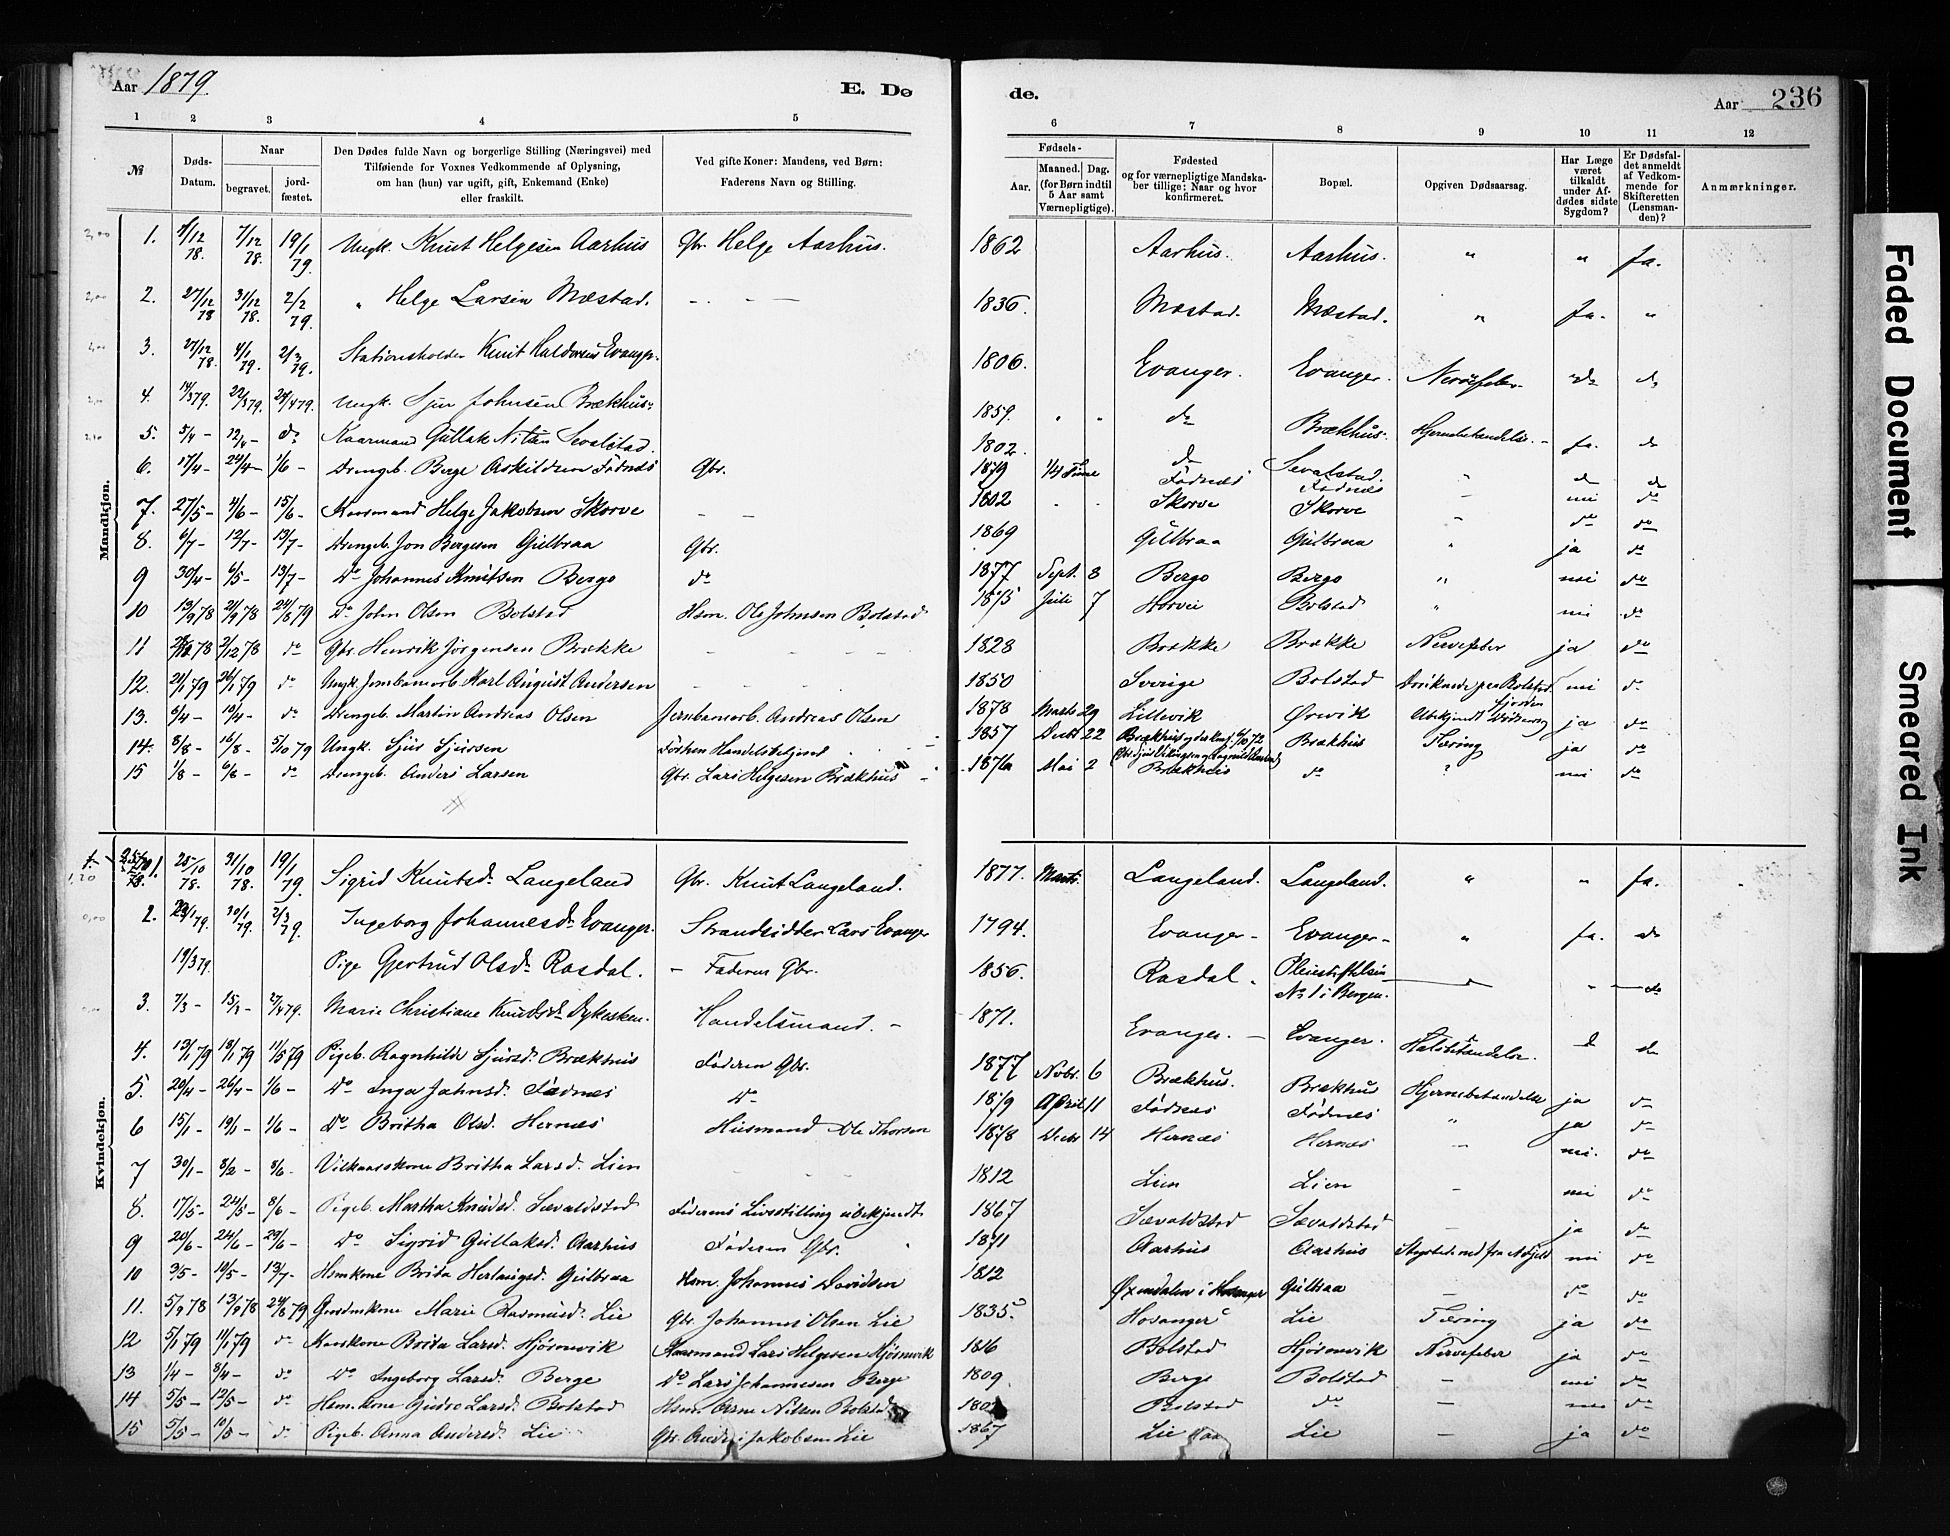 Aar 1879.
E. Dø
de.
Aar 236
1 2 3 4 5
6 7 8 9 10 11 12
№
Døds-Datum.
Naar
begravet.
jord-fæstet.
Den Dødes fulde Navn og borgerlige Stilling (Næringsvei) med
Tilføiende for Voxnes Vedkommende af Oplysning,
om han (hun) var ugift, gift, Enkemand (Enke)
eller fraskilt.
Ved gifte Koner: Mandens, ved Børn:
Faderens Navn og Stilling.
Fødsels-
Aar.
Maaned. Dag.
(for Børn indtil
5 Aar samt
Værnepligtige).
Fødested
og for værnepligtige Mandska-
ber tillige: Naar og hvor
konfirmeret.
Bopæl.
Opgiven Dødsaarsag.
Har Læge
været
tilkaldt
under Af-
dødes sidste
Sygdom?
Er Dødsfal-
det anmeldt
af Vedkom-
mende for
Skifteretten
(Lensman-
den)?
Anmærkninger.
Mandkjøn.
1. 7/12 78. 19/1 79. Ungk. Knut Helgesen Aarhus Gbr. Helge Aarhus. 1862 Aarhus. Aarhus. " " ja.
2. 27/12 78 31/12 78. 2/2 79. " Helge Larsen Mæstad. 1836. Mæstad. Mæstad. " ja. "
3. 27/12 78. 4/1 79. 2/3 79. Stationsholder Knut Evanger 1806. Evanger. Evanger. Nervefeber do do
4. 14/3 79. 22/3 79. 24/4 79. Ungk. Sjur Johnsen Brækhus. 1859. " " do Brækhus. ja. do
5. 5/4 - 12/4 - do Kaarmand Gullak Nilsen Sevalstad. 1802. do Sevalstad.
6. 17/4 - 24/4 - 1/6 - Drengeb. Berge Askildsen Fadnes Gbr. 1879 1/4 Time Fadnes Fadnes
7. 27/5 - 4/6 - 15/6 - Kaarmand Helge Jakobsen Skorve 1802 Skorve Skorve
8. 6/7 - 12/7 - 13/7 - Drengeb. Jon Bergesen Gulbraa Gbr. 1869 Gulbraa Gulbraa " ja do
9 30/4 - 6/5 - 13/7 - Do Johannes Knutsen Bergo do 1877 Sept. 8 Bergo Bergo " nei do
10 13/9 78 21/9 78 24/8 79 Do John Olsen Bolstad Hsm. Ole Johnsen Bolstad 1875 Juli 7 Horvei Bolstad " nei do
11 2/12 78 do Gbr. Henrik Jørgensen Brække 1828 Brække Brække Nervefeber ja do
12. 21/1 79 26/1 79 do Ungk. Jernbanearb. Karl August Andersen 1850 Sverige Bolstad nei do
13. 6/4 - 10/4 - do Drengeb. Martin Andreas Olsen Jernbanearb. Andreas Olsen 1878 Marts 29 Lillevik Ørvik ja do
14. 8/8 - 16/8 - 5/10 79 Ungk. Sjur Sjursen 1857 Decbr 22 Brækhus Brækhus Tæring ja do
15 1/8 - 6/8 - do Drengeb. Anders Larsen Gbr. Lars Helgesen Brækhus 1876 Mai 2 Brækhus do nei do
Kvindekjøn.
1. 25/10 78. 31/10 78. 19/1 79. Sigrid Knutsd. Langeland Gbr. Knut Langeland. 1877. Marts. Langeland. Langeland. " " ja.
2. 10/1 79. 2/3 79. Ingeborg Johannesd. Evanger. Strandsidder Lars Evanger 1794. Evanger - Evanger - " ja. do
19/3 79. Pige Gjertrud Olsd. Rasdal. - Faderen Gbr. 1856. Rasdal. Pleiestiftelsen No 1 i Bergen. " do
3. 7/3 - 15/3 - 27/4 79. Marie Christiane Knutsd. Dykesteen. Handelsmand. - 1871. Evanger. - Evanger. do do
4. 13/1 79 18/1 79 11/5 79 Pigeb. Ragnhilda Sjursd. Brækhus Faderen Gbr. 1877 Novbr. 6 Brækhus. Brækhus ja do
5. 20/4 - 26/4 - 1/6 - Do Inga Jahnsd. Fadnes Do 1879 April 11 Fadnes Fadnes " ja do
6 15/1 - 19/1 - 1/6 - Do Britha Olsd. Hernæs Husmand Ole Thorsen 1878 Decbr 14 Hernæs Hernæs - nei. do
7 30/1 - 8/2 - 8/6 - Vilkaarskone Britha Larsd. Lien 1812 Lien Lien - nei do
8. 17/5 - 24/5 - 8/6 - Pigeb. Martha Knudsd. Sævaldstad Faderens Livsstilling ubekjendt 1867 Sævaldstad Sævaldstad - ja do
9 20/6 - 24/6 - 29/6 - Do Sigrid Gullaksd. Aarhus Faderen Gbr. 1871 Aarhus Aarhus nei do
10 3/5 - 10/5 - 13/7 - Hsmkone Brita Herlaugsd. Gulbraa Hsm. Johannes Davidsen 1812 Øxendalen i Hosanger Gulbraa - do do
11. 5/9 78 13/9 78 24/8 79 Gaardmkone Marie Rasmusd. Lie Gbr. Johannes Olsen Lie 1835. Hosanger Lie Tæring ja do
12 5/1 79 11/1 79 do Kaarkone Brita Larsd. Hjørnevik Kaarmand Lars Helgesen Hjørnevik 1816 Bolstad Hjørnevik Nervefeber ja do
13 1/4 - 8/4 - do Do Ingeborg Larsd. Berge Do Lars Johannesen Berge 1809 Berge Bolstad - nei do
14 5/5 - 12/5 - do Hsm.kone Gudve Larsd. Bolstad Hsm. Arne Nilsen Bolstad Bolstad do - nei do
15 5/5 - 10/5 - do Pigeb. Anna Andersd. Lie Gbr. Anders Jakobsen Lie 1867 Lie Lie - ja do
Faded Document
Smeared Ink